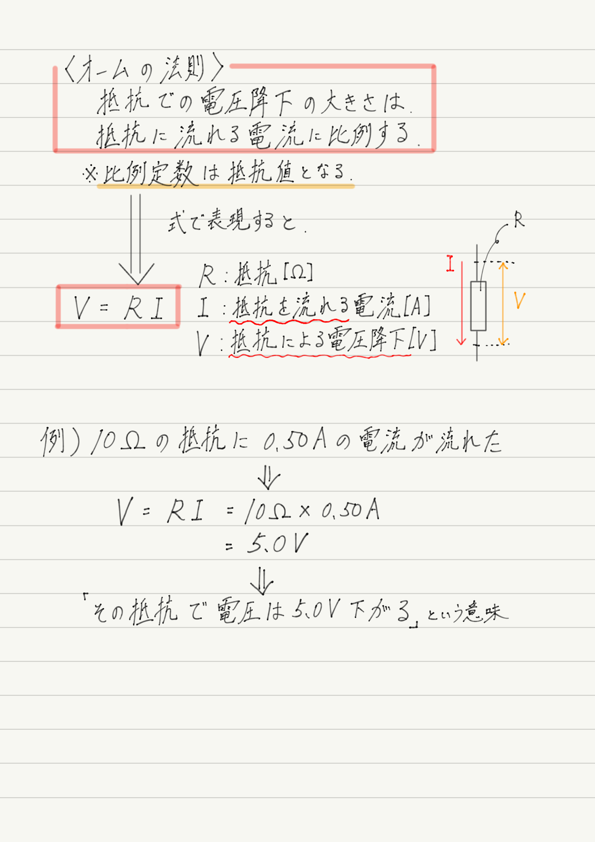 〈オームの法則〉
抵抗での電圧降下の大きさは、
抵抗に流れる電流に比例する.
※比例定数は抵抗値となる.
式で表現すると、
R
R:抵抗[Ω]
I
V = RI
I:抵抗を流れる電流[A]
V
V:抵抗による電圧降下[V]
例)10Ωの抵抗に0.50Aの電流が流れた
⇓
V = RI = 10Ω × 0.50A
= 5.0V
⇓
「その抵抗で電圧は5.0V下がる」という意味